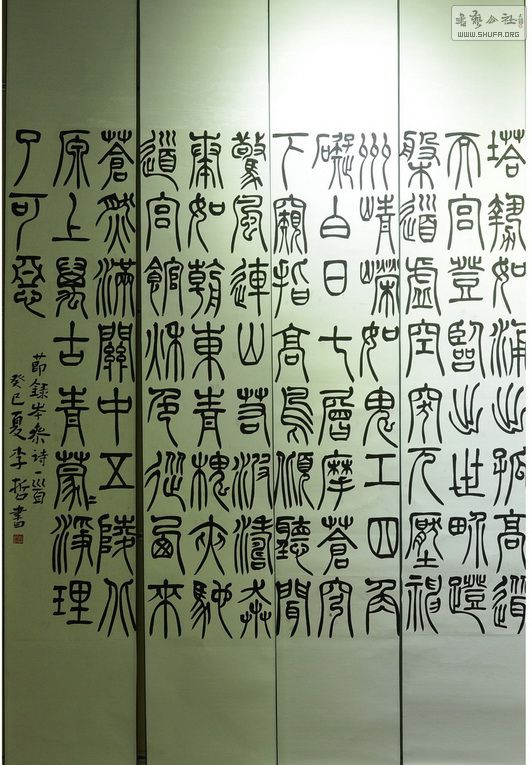 塔勢如涌出孤高聳
天宫登臨出世界蹬
盤道虚空突兀壓神
州崢嶸如鬼工四角
礙白日七層摩蒼穹
下窺指高鳥俯聽聞
驚風連山若波濤奔
湊如朝東青槐夾馳
道宫館秋色從西來
蒼然滿關中五陵北
原上萬古青蒙〻淨理
了可悟
節錄岑參詩一首
癸巳夏李哲書
書藝公社
WWW.SHUFA.ORG